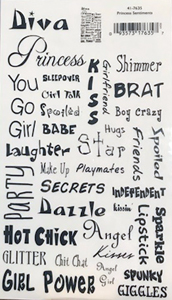 #1-7635
Princess Sentiments
Diva
Princess
SLEEPOVER
Girl Talk
You
Go
Girl
Spoiled
BABE
KISS
Girlfriend
Shimmer
BRAT
Boy crazy
Hugs
Star
Spoiled
Friends
Laughter
Make Up
Playmates
PARTY
SECRETS
INDEPENDENT
Dazzle
kissin'
Lipstick
Sparkle
HOT CHICK
Angel
GLITTER
Chit Chat
Kisses
Angel
Girl
SPUNKY
GIRL POWER
GIGGLES